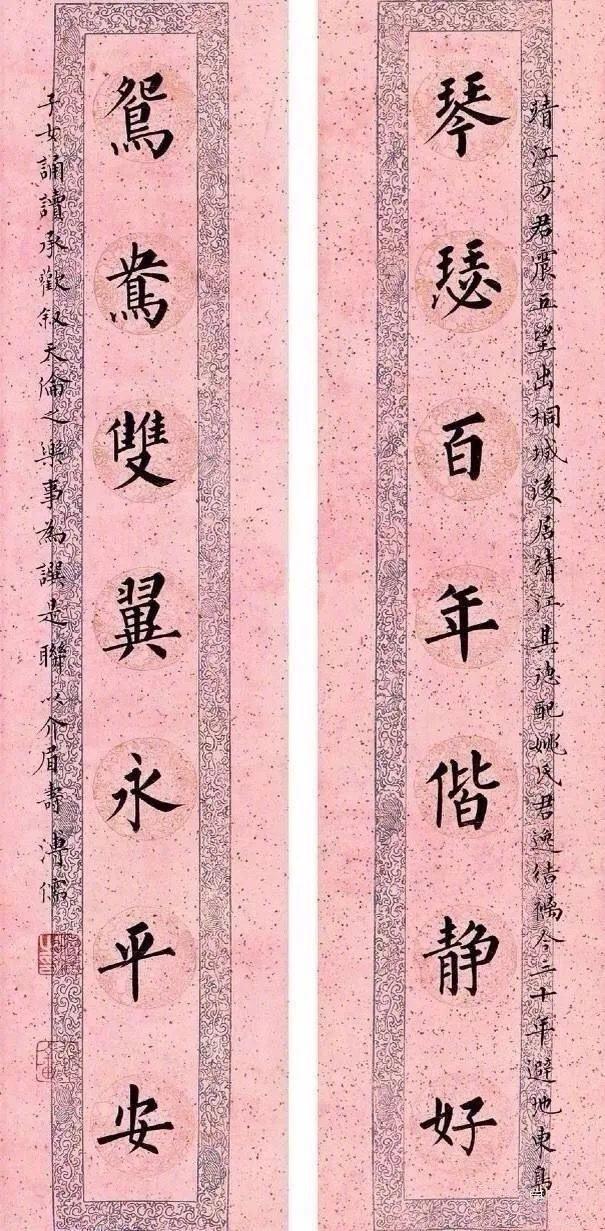 靖江方君震五望出桐城後居靖江其德配姚氏君逸結褵今三十年避地東島
琴瑟百年偕静好
鴛鴦雙翼永平安
子女誦讀承歡叙天倫之樂事為譔是聯以介眉壽 溥儒